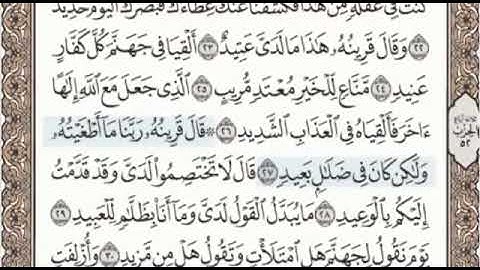 كُنتَ فِى غَفْلَةٍ مِّنْ هَٰذَا فَكَشَفْنَا عَنكَ غِطَآءَكَ فَبَصَرُكَ ٱلْيَوْمَ حَدِيدٌ
٢٢ وَقَالَ قَرِينُهُۥ هَٰذَا مَا لَدَىَّ عَتِيدٌ ٢٣ أَلْقِيَا فِى جَهَنَّمَ كُلَّ كَفَّارٍ
عَنِيدٍ ٢٤ مَّنَّاعٍ لِّلْخَيْرِ مُعْتَدٍ مُّرِيبٍ ٢٥ ٱلَّذِى جَعَلَ مَعَ ٱللَّهِ إِلَٰهًا
ءَاخَرَ فَأَلْقِيَاهُ فِى ٱلْعَذَابِ ٱلشَّدِيدِ ٢٦ ۞ قَالَ قَرِينُهُۥ رَبَّنَا مَآ أَطْغَيْتُهُۥ
وَلَٰكِن كَانَ فِى ضَلَٰلٍۭ بَعِيدٍ ٢٧ قَالَ لَا تَخْتَصِمُوا۟ لَدَىَّ وَقَدْ قَدَّمْتُ
إِلَيْكُم بِٱلْوَعِيدِ ٢٨ مَا يُبَدَّلُ ٱلْقَوْلُ لَدَىَّ وَمَآ أَنَا۠ بِظَلَّٰمٍ لِّلْعَبِيدِ ٢٩
يَوْمَ نَقُولُ لِجَهَنَّمَ هَلِ ٱمْتَلَأْتِ وَتَقُولُ هَلْ مِن مَّزِيدٍ ٣٠ وَأُزْلِفَتِ
الحزب
٥٢